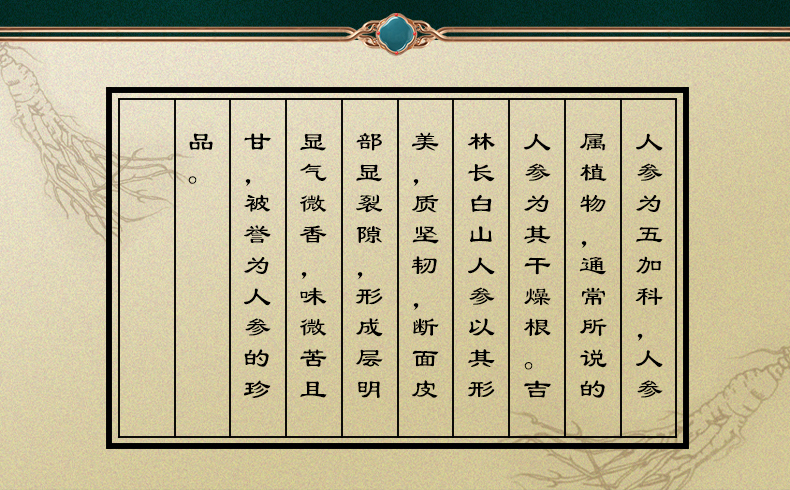 人参为五加科，人参
属植物，通常所说的
人参为其干燥根。吉
林长白山人参以其形
美，质坚韧，断面皮
部显裂隙，形成层明
显气微香，味微苦且
甘，被誉为人参的珍
品。